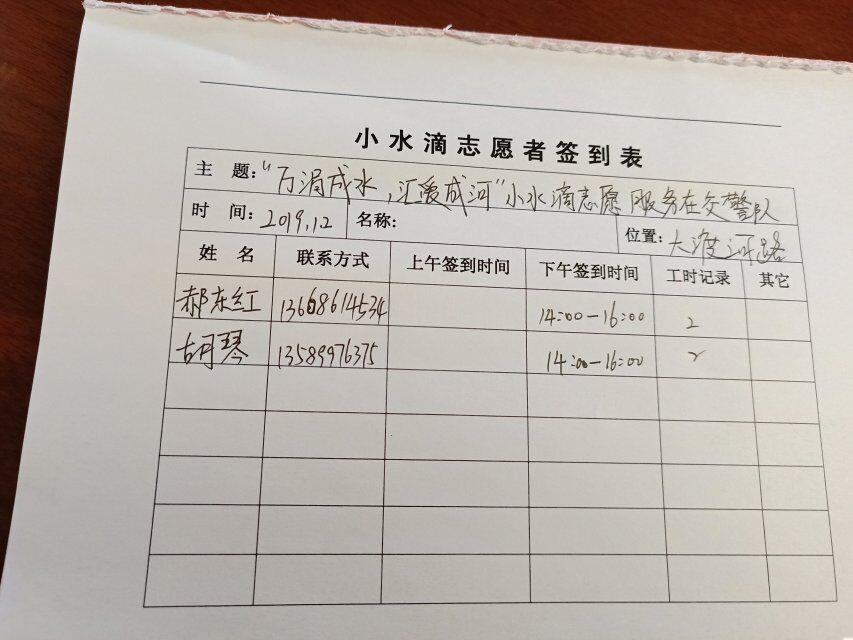 小水滴志愿者签到表
主 题:“万涓成水,汇爱成河”小水滴志愿服务在交警队
时 间:2019.12 名称: 位置:大渡河路
姓 名 联系方式 上午签到时间 下午签到时间 工时记录 其它
郝东红 13668614534 14:00-16:00 2
胡琴 13589976375 14:00-16:00 2